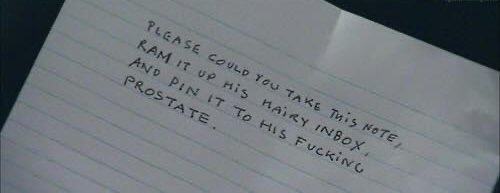 PLEASE COULD YOU TAKE THIS NOTE,
RAM IT UP HIS HAIRY INBOX,
AND PIN IT TO HIS FUCKING
PROSTATE.